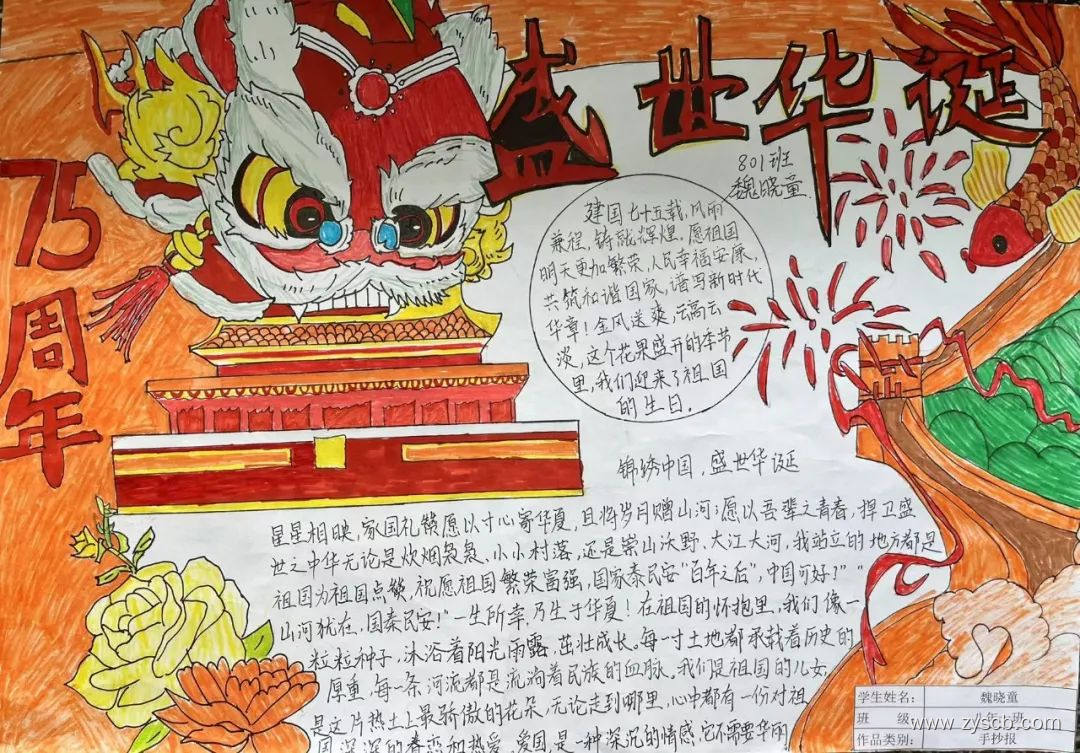 盛世华诞
75周年
801班
魏晓童
建国七十五载,风雨
兼程,铸就辉煌。愿祖国
明天更加繁荣,人民幸福安康,
共筑和谐国家,谱写新时代
华章!金风送爽,云高云
淡,这个花果盛开的季节
里,我们迎来了祖国
的生日。
锦绣中国,盛世华诞
星星相映,家国礼赞愿以寸心寄华夏,且将岁月赠山河;愿以吾辈之青春,捍卫盛
世之中华无论是炊烟袅袅、小小村落,还是崇山沃野、大江大河,我站立的地方都是
祖国为祖国点赞,祝愿祖国繁荣富强,国家泰民安"百年之后",中国可好?""
山河犹在,国泰民安!"一生所幸,乃生于华夏!在祖国的怀抱里,我们像一
粒粒种子,沐浴着阳光雨露,茁壮成长。每一寸土地都承载着历史的
厚重,每一条河流都是流淌着民族的血脉。我们是祖国的儿女,
是这片热土上最骄傲的花朵,无论走到哪里,心中都有一份对祖
国深深的眷恋和热爱,爱国是一种深沉的情感,它不需要华丽
学生姓名: 魏晓童
班 级: 班
作品类别: 手抄报
www.zyscb.com